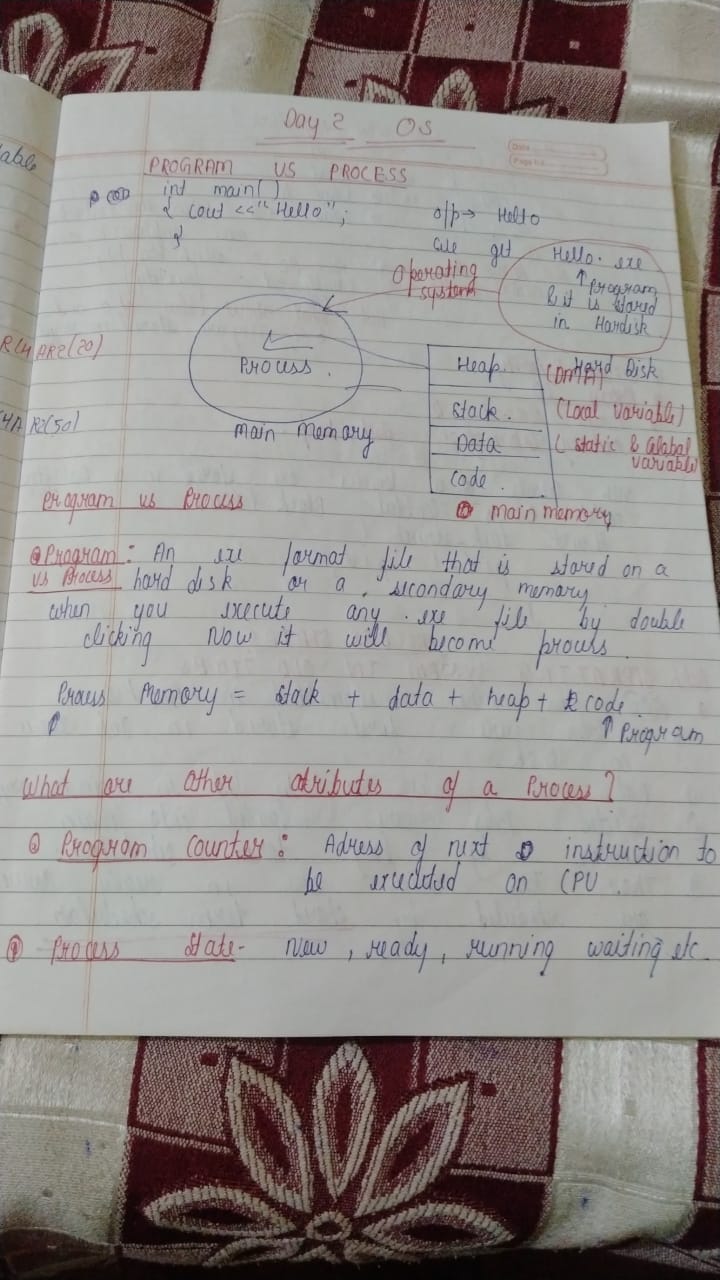 able
R(4 AR2(20)
4A R2(50)
Day 2 OS
Date
Page No
PROGRAM VS PROCESS
int main()
{ cout <<"Hello";
}
o/p → Hello
we get Hello.exe
↑ program
& it is stored
in Hardisk
Operating
system
Process.
main memory
Hard Disk
Heap (DMA)
Stack. (Local variable)
Data ( static & Glabal
variable)
Code.
main memory
Program vs Process
Program: An exe format file that is stored on a
vs Process hard disk or a secondary memory
when you execute any .exe file by double
clicking Now it will become process.
Process Memory = stack + data + heap + code
↑ ↑ Program
What are Other atributes of a Process?
Program Counter: Adress of next instruction to
be executed on CPU.
Process State- New, ready, running waiting etc.